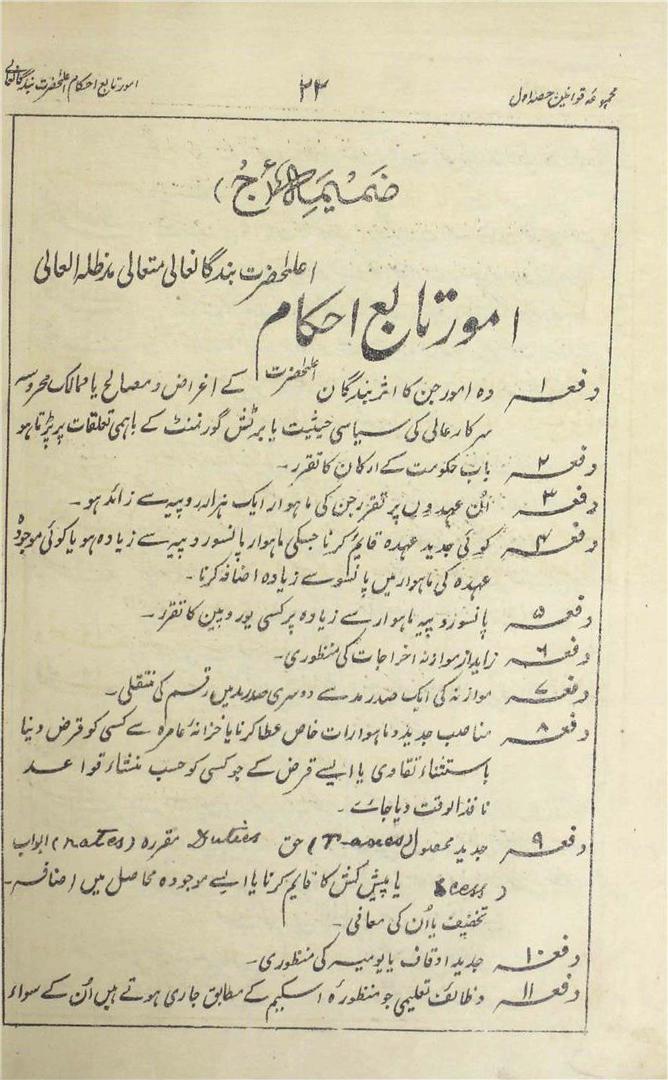 مجموعہ قوانین حصہ اول
۲۲
امور تابع احکام اعلحضرت بندگانعالی
ضمیمہ (ج)
اعلحضرت بندگانعالی متعالی مدظلہ العالی
امور تابع احکام
دفعہ ۱ وہ امور جن کا اثر بندگان اعلحضرت کے اغراض و مصالح یا ممالک محروسہ
سرکار عالی کی سیاسی حیثیت یا برٹش گورنمنٹ کے باہمی تعلقات پر پڑتا ہو
دفعہ ۲ باب حکومت کے ارکان کا تقرر ۔
دفعہ ۳ اُن عہدوں پر تقرر جن کی ماہوار ایک ہزار روپیہ سے زائد ہو ۔
دفعہ ۴ کوئی جدید عہدہ قایم کرنا جسکی ماہوار پانسو روپیہ سے زیادہ ہو یا کوئی موجودہ
عہدہ کی ماہوار میں پانسو سے زیادہ اضافہ کرنا ۔
دفعہ ۵ پانسو روپیہ ماہوار سے زیادہ پر کسی یوروپین کا تقرر ۔
دفعہ ۶ زاید از موازنہ اخراجات کی منظوری ۔
دفعہ ۷ موازنہ کی ایک صدر مد سے دوسری صدر مد میں رقم کی منتقلی ۔
دفعہ ۸ مناصب جدید و ماہوارات خاص عطا کرنا یا خزانۂ عامرہ سے کسی کو قرض دینا
باستثناء تقاوی یا ایسے قرض کے جو کسی کو حسب منشاء قواعد
نافذ الوقت دیا جائے ۔
دفعہ ۹ جدید محصول (Taxes) حق Duties مقررہ (rates) ابواب
(cess یا پیش کش کا قایم کرنا یا ایسے موجودہ محاصل میں اضافہ ۔
تخفیف یا اُن کی معافی ۔
دفعہ ۱۰ جدید اوقاف یا یومیہ کی منظوری ۔
دفعہ ۱۱ وظائف تعلیمی جو منظورہ اسکیم کے مطابق جاری ہوتے ہیں اُن کے سواء